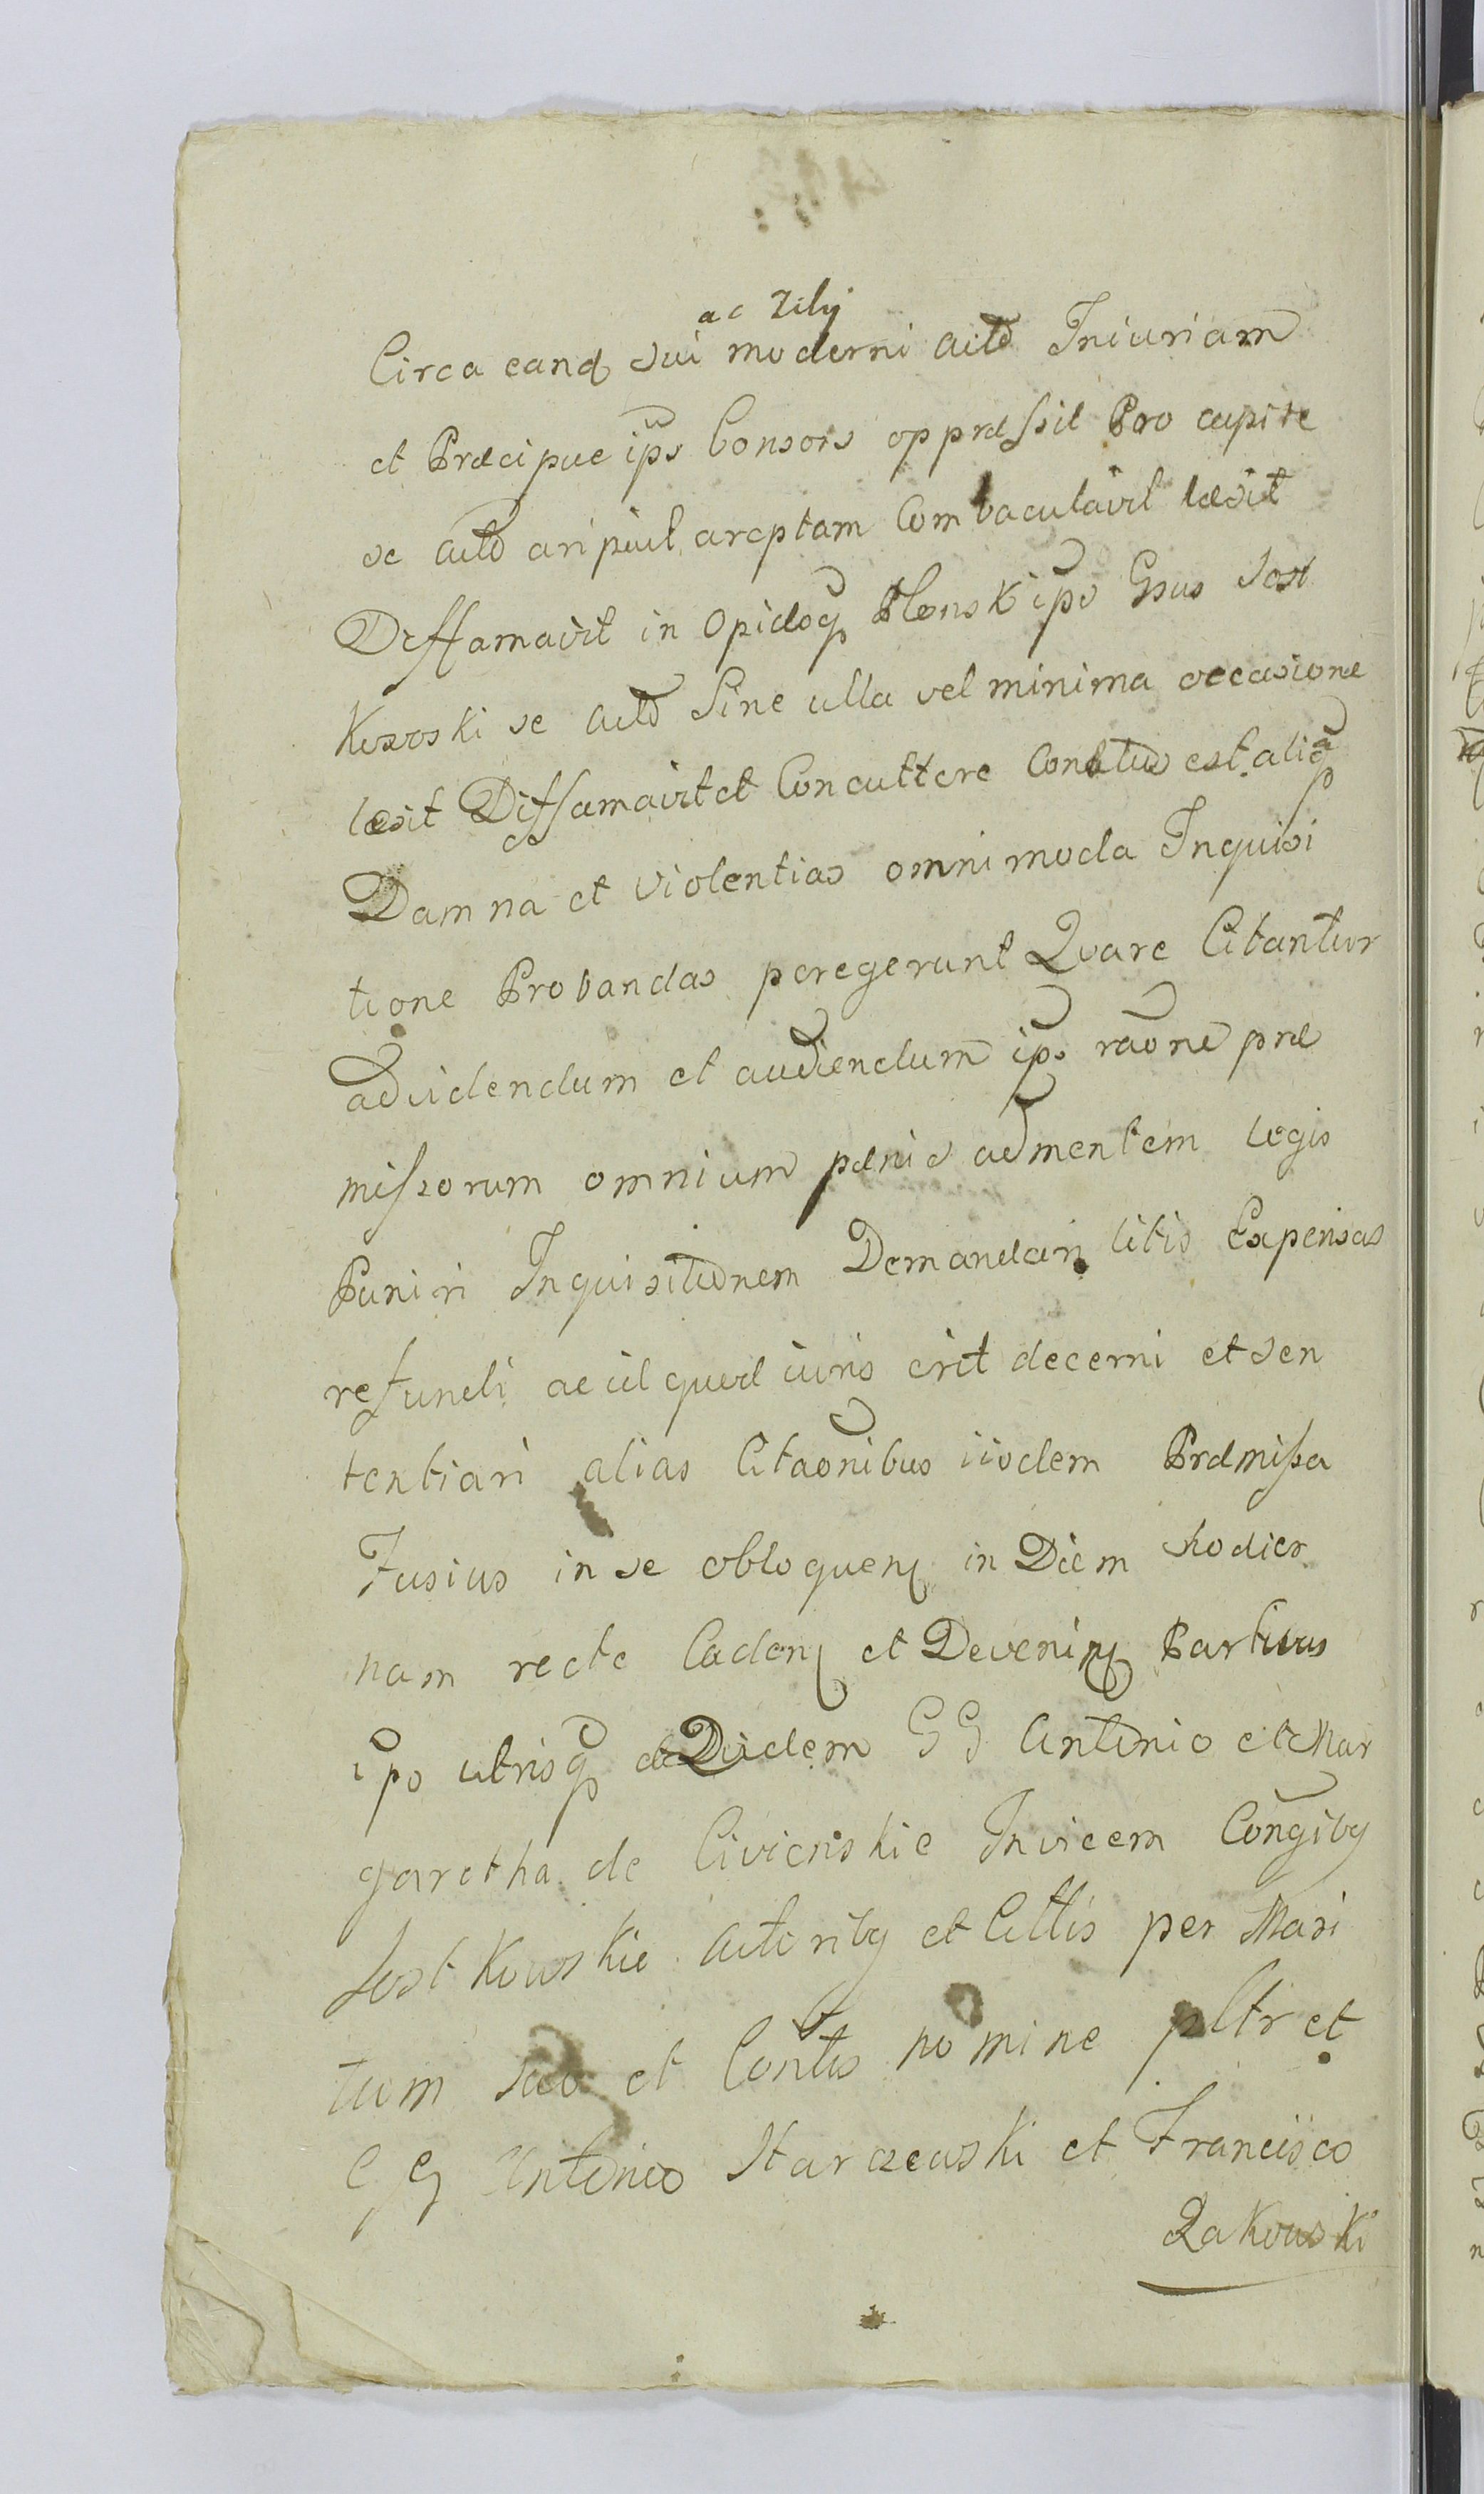 ac Zilij
Circa eanq sui moderni actō Iniuriam
et Præcipue ips Consors oppræssit Pro capite
se actō aripuit areptam Combaculavit læsit
Deffamavit in Opidoq Plonsk ipo Gsus Sost
Kowski se actō Sine ulla vel minima occasione
læsit Diffamavit et Concuttere Conatus est aliaq
Damna et violentias omnimoda Inquisi
tione Probandas peregerunt Quare Citantur
ad videndum et audiendum ips raōne præ
missorum omnium pænis ad mentem legis
Puniri Inquisitionem Demandari litis Expensas
refundi ac id quod iuris erit decerni et sen
tentiari alias Citaōnibus iisdem Præmissa
Fusius in se obloquenq in Diem hodier
nam recte Cadenq et Devenienq Partibus
ipo utrisq Diidem GG Antonio et Mar
garetha de Civienskie Invicem Congibq
Sostkowskie Actoribq et Cittis per Mari
tum suo et Contis nomine pltr et
GG Antonio Starczewski et Francisco
Zakowski